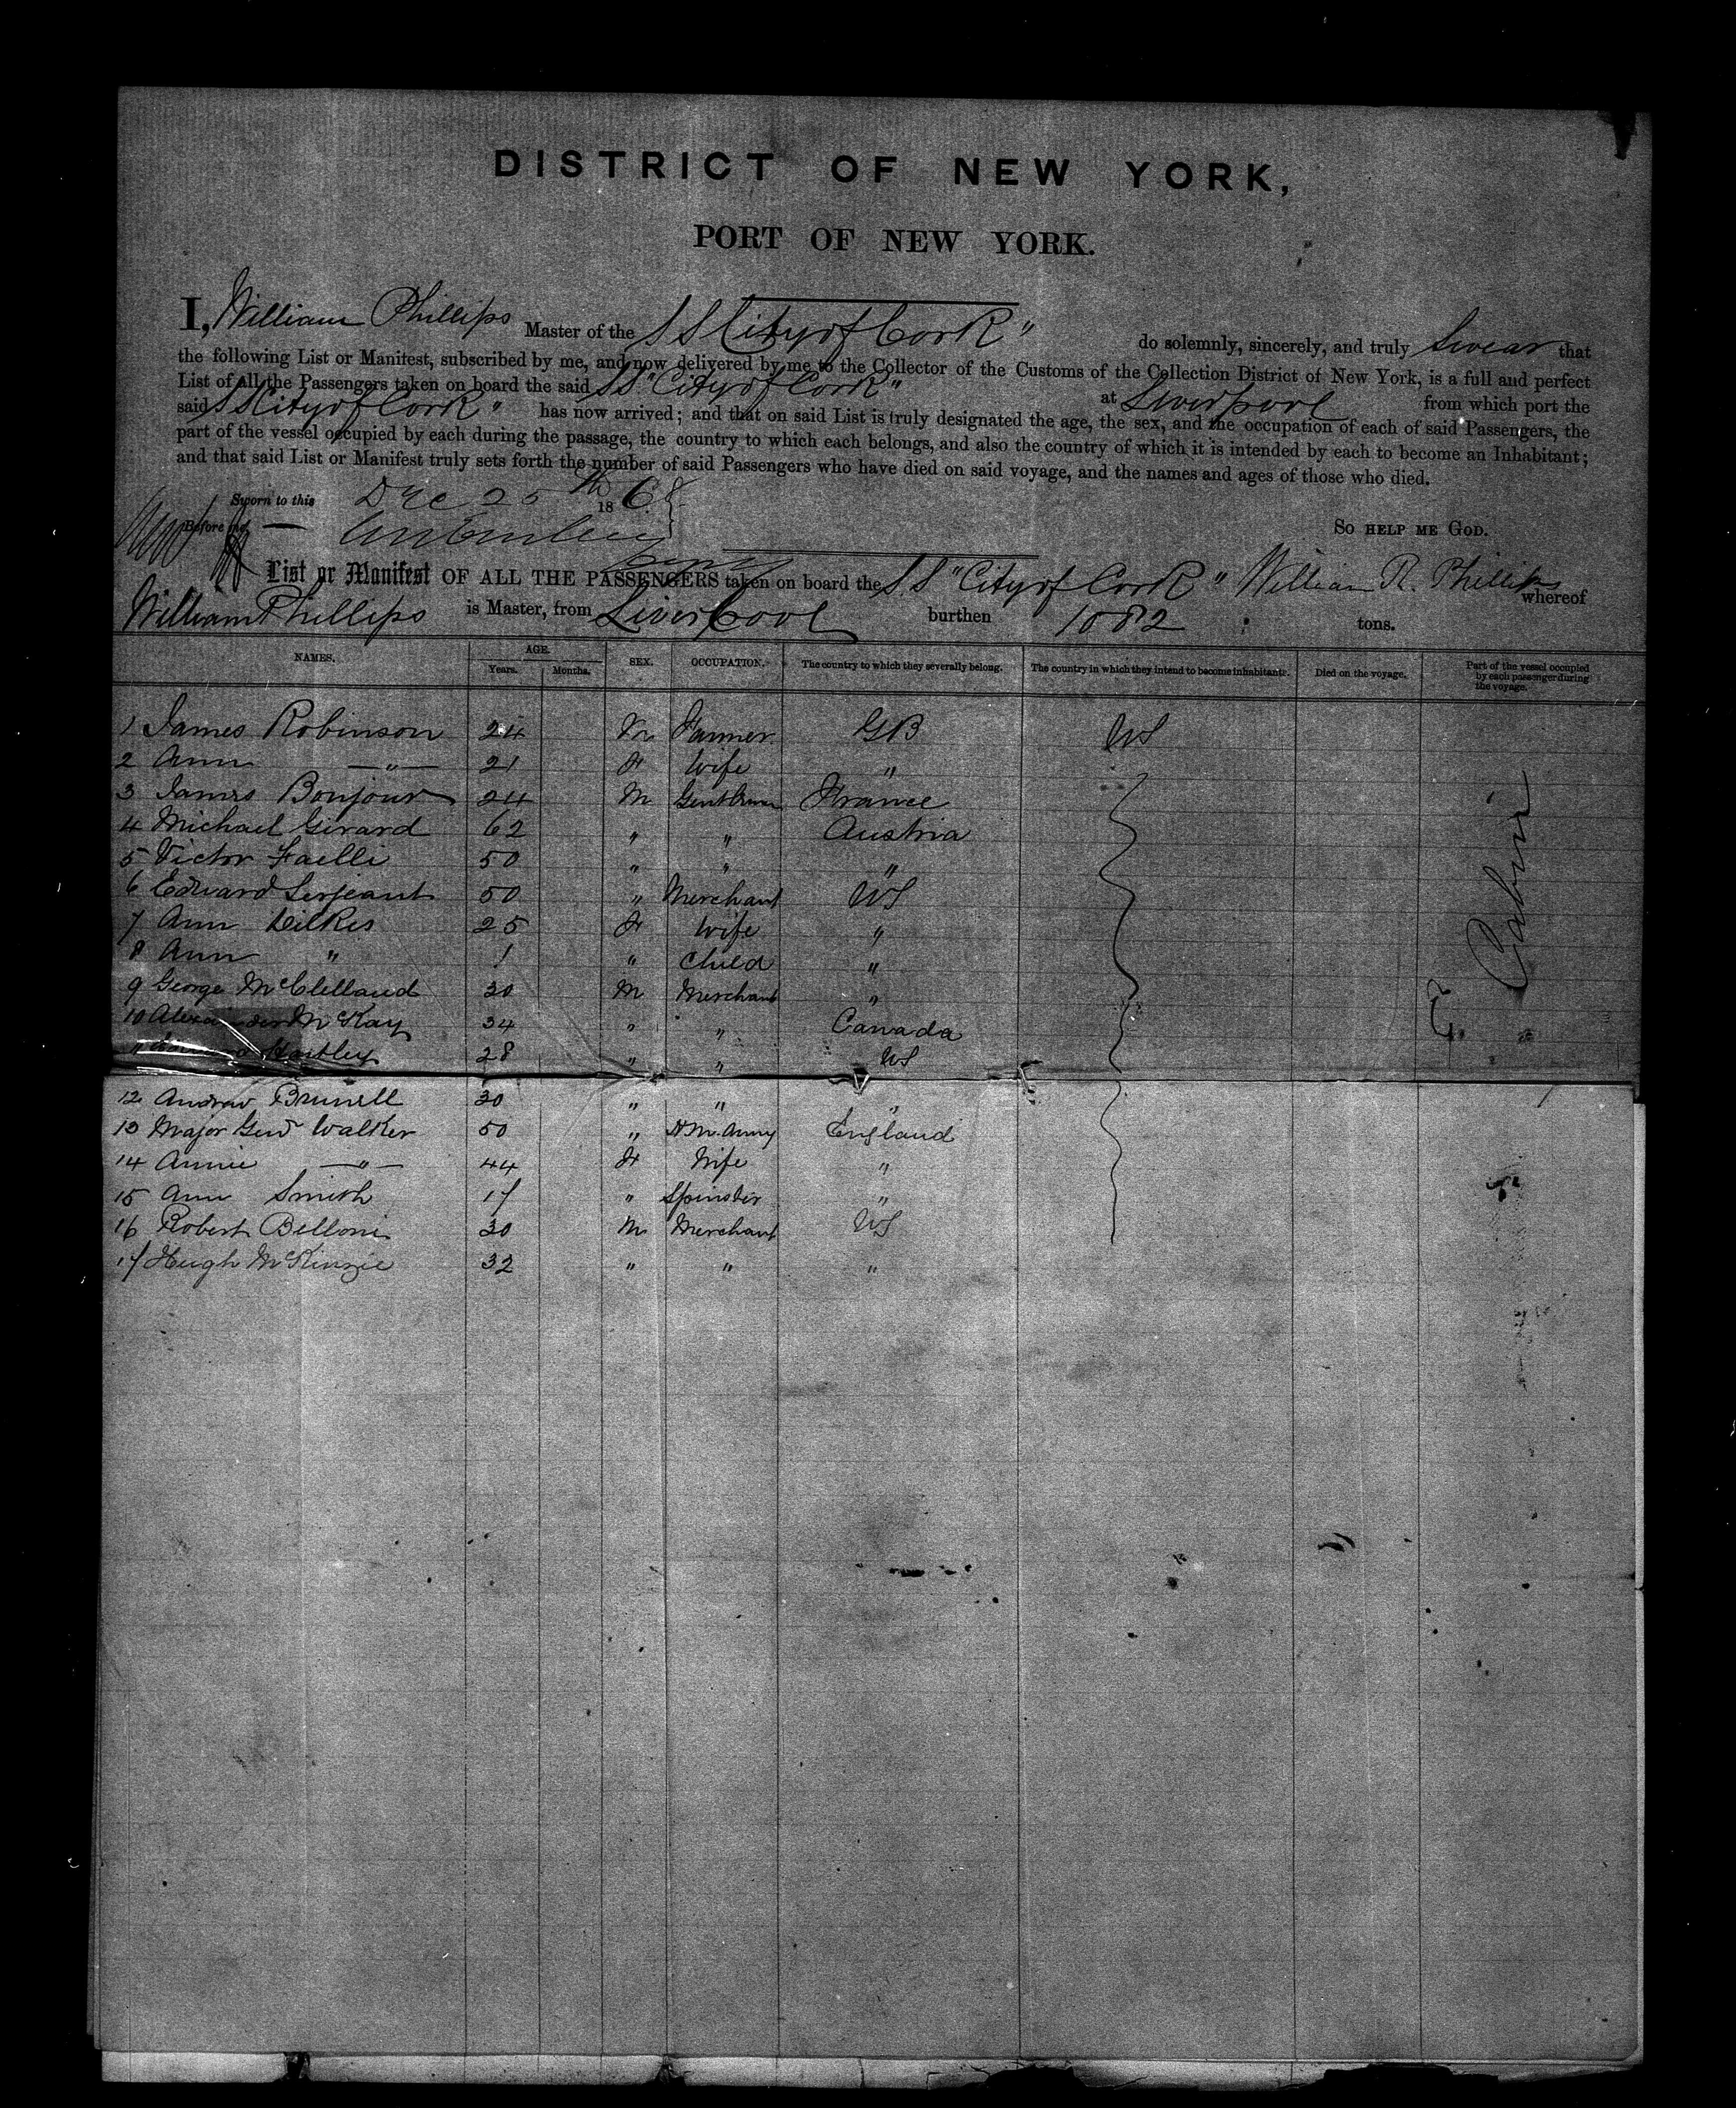 DISTRICT OF NEW YORK,
PORT OF NEW YORK.
I, William Phillips Master of the SS City of Cork" do solemnly, sincerely, and truly Swear that
the following List or Manifest, subscribed by me, and now delivered by me to the Collector of the Customs of the Collection District of New York, is a full and perfect
List of all the Passengers taken on board the said SS "City of Cork" at Liverpool from which port the
said SS City of Cork" has now arrived; and that on said List is truly designated the age, the sex, and the occupation of each of said Passengers, the
part of the vessel occupied by each during the passage, the country to which each belongs, and also the country of which it is intended by each to become an Inhabitant;
and that said List or Manifest truly sets forth the number of said Passengers who have died on said voyage, and the names and ages of those who died.
Sworn to this Dec 25th 1868
Before me
So help me God.
List or Manifest OF ALL THE PASSENGERS taken on board the S.S "City of Cork" William R. Phillips whereof
William Phillips is Master, from Liverpool burthen 1082 tons.
NAMES. AGE. Years. Months. SEX. OCCUPATION. The country to which they severally belong. The country in which they intend to become inhabitants. Died on the voyage. Part of the vessel occupied by each passenger during the voyage.
1 James Robinson 24 M Farmer GB US
2 Ann —"— 21 F Wife "
3 James Bonjour 24 M Gentleman France
4 Michael Girard 62 " " Austria
5 Victor Faelli 50 " " "
6 Edward Serjeant 50 " Merchant US
7 Ann Dilkes 25 F Wife "
8 Ann " 1 " Child "
9 George McClelland 30 M Merchant "
10 Alexander McKay 34 " " Canada
11 Hartley 28 " " US
12 Andrew Brunell 30 " " "
13 Major Genl Walker 50 " H.M. Army England
14 Annie —"— 44 F Wife "
15 Ann Smith 17 " Spinster "
16 Robert Belloni 30 M Merchant US
17 Hugh McKinzie 32 " " "
Cabin